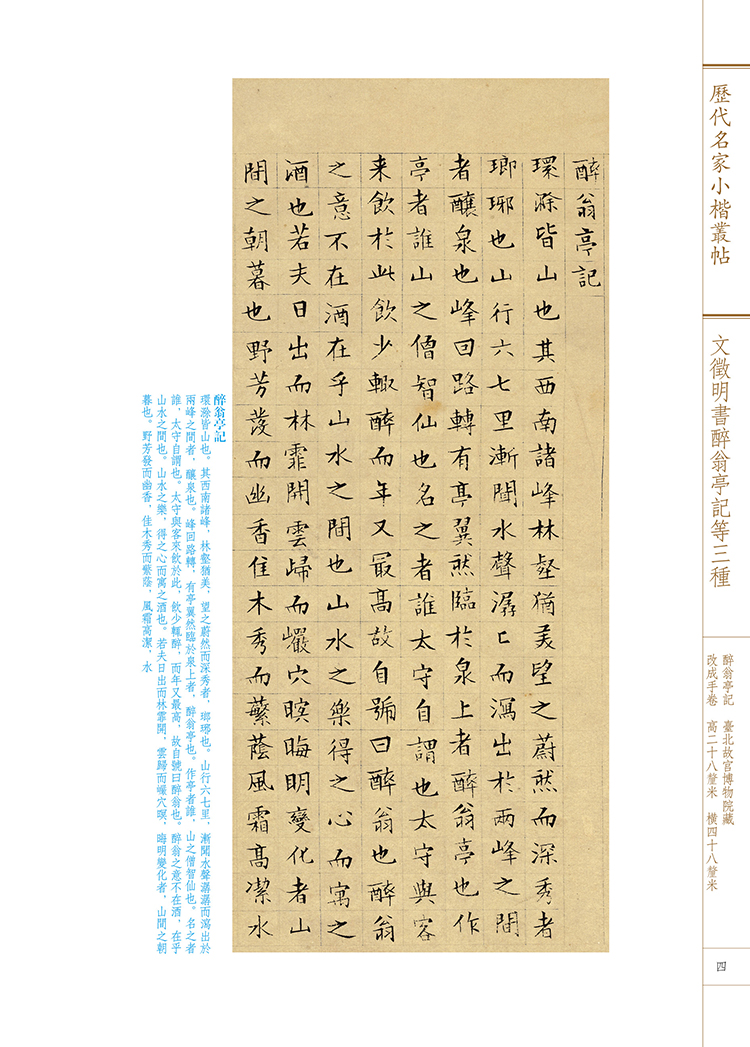 歷代名家小楷叢帖
文徵明書醉翁亭記等三種
醉翁亭記 臺北故宮博物院藏
改成手卷 高二十八釐米 橫四十八釐米
四
醉翁亭記
環滁皆山也其西南諸峰林壑猶美望之蔚然而深秀者
瑯琊也山行六七里漸聞水聲潺〻而瀉出於兩峰之間
者釀泉也峰回路轉有亭翼然臨於泉上者醉翁亭也作
亭者誰山之僧智仙也名之者誰太守自謂也太守與客
来飲於此飲少輙醉而年又最高故自號曰醉翁也醉翁
之意不在酒在乎山水之間也山水之樂得之心而寓之
酒也若夫日出而林霏開雲歸而巖穴暝晦明變化者山
間之朝暮也野芳發而幽香佳木秀而蘩蔭風霜高潔水
醉翁亭記
環滁皆山也。其西南諸峰，林壑猶美，望之蔚然而深秀者，瑯琊也。山行六七里，漸聞水聲潺潺而瀉出於
兩峰之間者，釀泉也。峰回路轉，有亭翼然臨於泉上者，醉翁亭也。作亭者誰，山之僧智仙也。名之者
誰，太守自謂也。太守與客來飲於此，飲少輒醉，而年又最高，故自號曰醉翁也。醉翁之意不在酒，在乎
山水之間也。山水之樂，得之心而寓之酒也。若夫日出而林霏開，雲歸而巖穴暝，晦明變化者，山間之朝
暮也。野芳發而幽香，佳木秀而繁蔭，風霜高潔，水